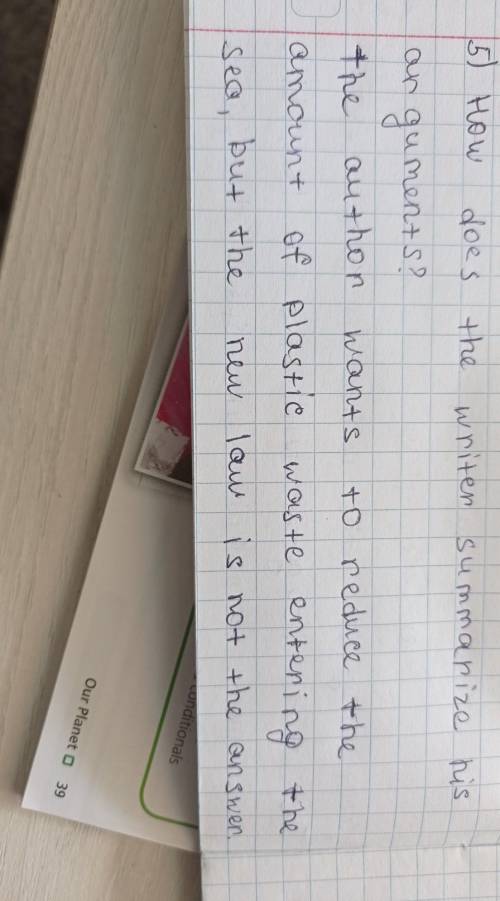 5) How does the writer summarize his
arguments?
the author wants to reduce the
amount of plastic waste entering the
sea, but the new law is not the answer.
conditionals
Our Planet 39